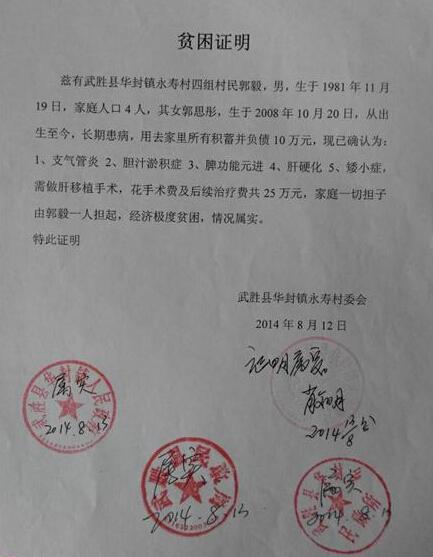 贫困证明
兹有武胜县华封镇永寿村四组村民郭毅，男，生于 1981 年 11 月
19 日，家庭人口 4 人，其女郭思彤，生于 2008 年 10 月 20 日，从出
生至今，长期患病，用去家里所有积蓄并负债 10 万元，现已确认为：
1、支气管炎 2、胆汁淤积症 3、脾功能元进 4、肝硬化 5、矮小症，
需做肝移植手术，花手术费及后续治疗费共 25 万元，家庭一切担子
由郭毅一人担起，经济极度贫困，情况属实。
特此证明
武胜县华封镇永寿村委会
2014 年 8 月 12 日
证明属实
2014
属实
2014.8.13
武胜县华封镇人民政府
属实
2014.8.13
属实
2014.8.13